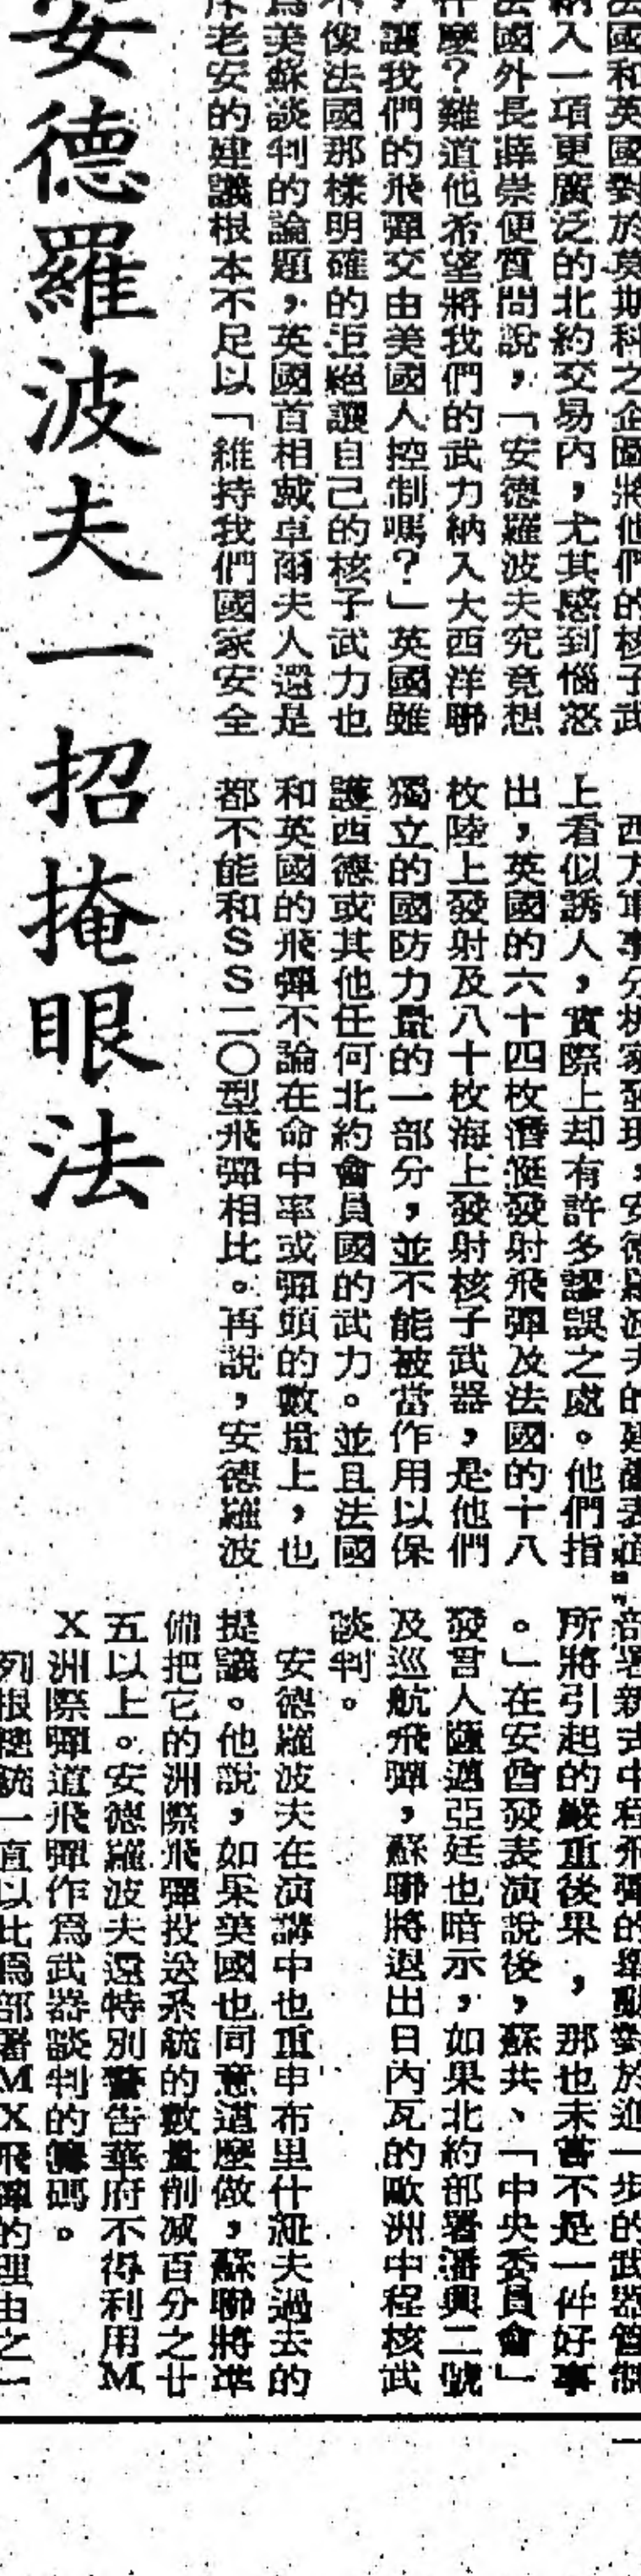 安德羅波夫一招掩眼法
法國和英國對於莫斯科之企圖將他們的核子武
納入一項更廣泛的北約交易內，尤其感到惱怒
法國外長薛崇便質問說，「安德羅波夫究竟想
什麼？難道他希望將我們的武力納入大西洋聯
，讓我們的飛彈交由美國人控制嗎？」英國雖
不像法國那樣明確的拒絕讓自己的核子武力也
為美蘇談判的論題，英國首相戴卓爾夫人還是
斥老安的建議根本不足以「維持我們國家安全
西方軍事分析家發現，安德羅波夫的建議表面
上看似誘人，實際上却有許多謬誤之處。他們指
出，英國的六十四枚潛艇發射飛彈及法國的十八
枚陸上發射及八十枚海上發射核子武器，是他們
獨立的國防力量的一部分，並不能被當作用以保
護西德或其他任何北約會員國的武力。並且法國
和英國的飛彈不論在命中率或彈頭的數量上，也
都不能和ＳＳ二〇型飛彈相比。再說，安德羅波
部署新式中程飛彈的舉動對於進一步的武器管制
所將引起的嚴重後果，那也未嘗不是一件好事
。」在安酋發表演說後，蘇共、「中央委員會」
發言人匯邁亞廷也暗示，如果北約部署潘興二號
及巡航飛彈，蘇聯將退出日內瓦的歐洲中程核武
談判。
安德羅波夫在演講中也重申布里什紐夫過去的
提議。他說，如果美國也同意這麼做，蘇聯將準
備把它的洲際飛彈投送系統的數量削減百分之廿
五以上。安德羅波夫還特別警告華府不得利用Ｍ
Ｘ洲際彈道飛彈作為武器談判的籌碼。
列根總統一直以此為部署ＭＸ飛彈的理由之一